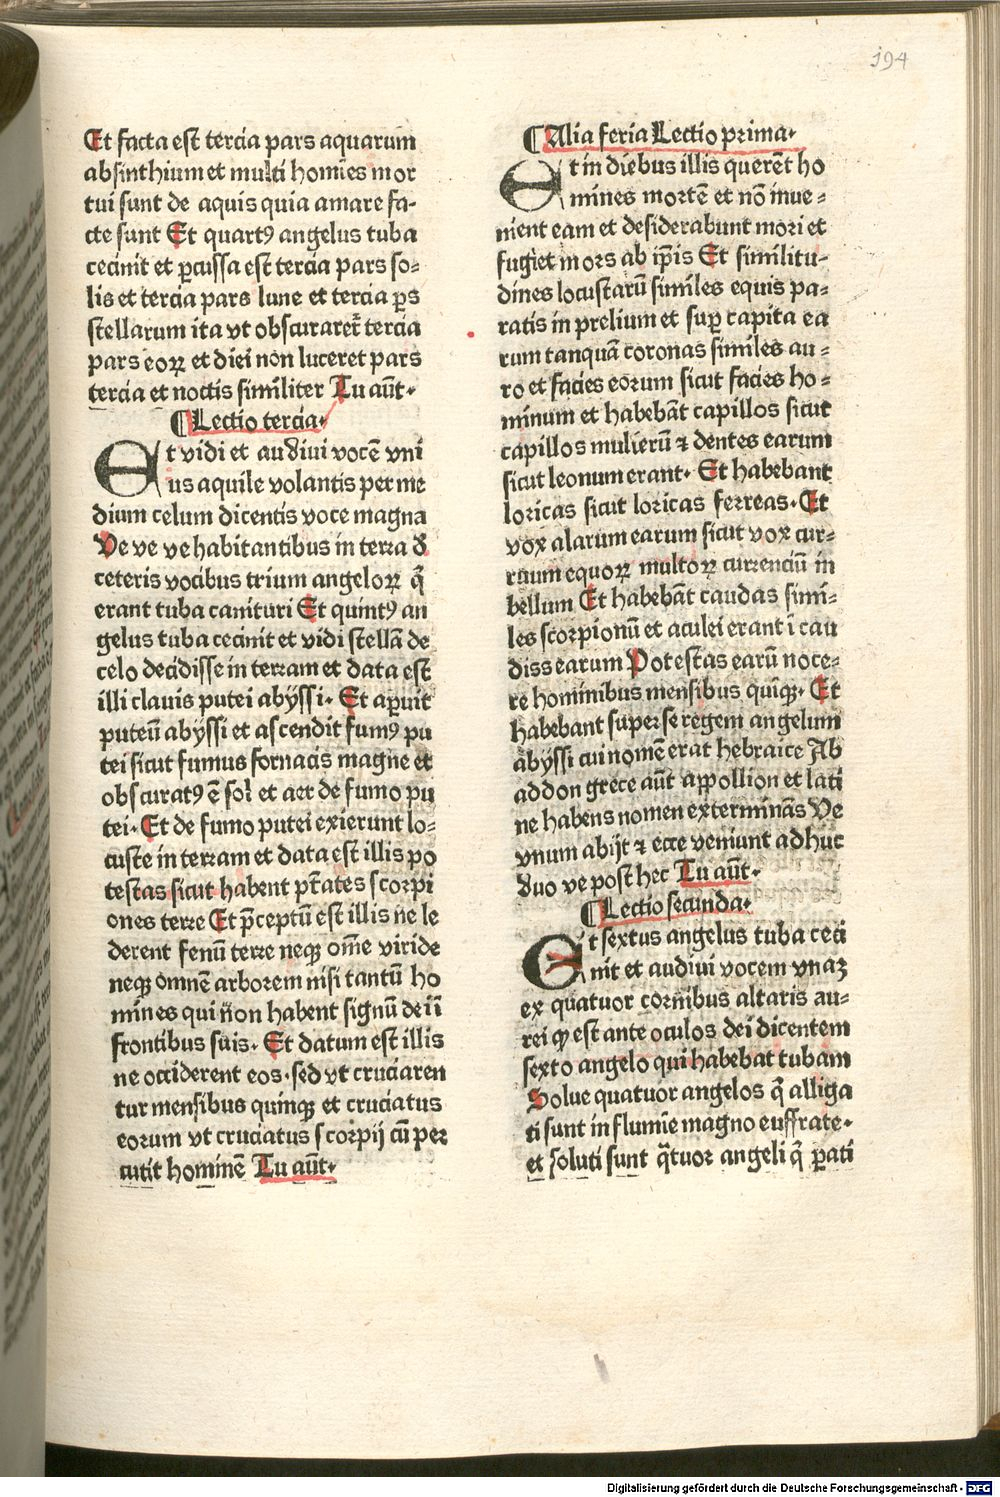 194
Et facta est tercia pars aquarum
absinthium et multi homīes mor
tui sunt de aquis quia amare fa-
cte sunt Et quartꝰ angelus tuba
cecinit et ꝑcussa est tercia pars so⸗
lis et tercia pars lune et tercia ꝑs
stellarum ita vt obscurareꝛ̄ tercia
pars eoꝝ et diei non luceret pars
tercia et noctis similiter Tu aūt·
¶ Lectio tercia·
Et vidi et audiui vocē vni
us aquile volantis per me
dium celum dicentis voce magna
Ve ve ve habitantibus in terra d̄
ceteris vocibus trium angeloꝝ q̄
erant tuba canituri Et quintꝰ an
gelus tuba cecinit et vidi stellā de
celo decidisse in terram et data est
illi clauis putei abyssi· Et aꝑuit
puteū abyssi et ascendit fumꝰ pu
tei sicut fumus fornacis magne et
obscuratꝰ ē sol et aer de fumo pu
tei· Et de fumo putei exierunt lo⸗
custe in terram et data est illis po
testas sicut habent p̄tates scorpi
ones terre Et p̄ceptū est illis ne le
derent fenū terre neqꝫ om̄e viride
neqꝫ omnē arborem nisi tantū ho
mines qui non habent signū dei ī
frontibus suis· Et datum est illis
ne occiderent eos· sed vt cruciaren
tur mensibus quinqꝫ et cruciatus
eorum vt cruciatus scorpij cū per
cutit hominē Tu aūt·
¶ Alia feria Lectio prima·
Et in diebus illis querēt ho
mines mortē et nō inue⸗
nient eam et desiderabunt mori et
fugiet mors ab ip̄is Et similitu-
dines locustarū similes equis pa⸗
ratis in prelium et suꝑ capita ea
rum tanquā coronas similes au⸗
ro et facies eorum sicut facies ho⸗
minum et habebāt capillos sicut
capillos mulierū ⁊ dentes earum
sicut leonum erant· Et habebant
loricas sicut loricas ferreas· Et
vox alarum earum sicut vox cur⸗
ruum equoꝝ multoꝝ currenciū in
bellum Et habebāt caudas simi⸗
les scorpionū et aculei erant ī cau
diss earum Potestas earū noce⸗
re hominibus mensibus quīqꝫ· Et
habebant super se regem angelum
abyssi cui nomē erat hebraice Ab
addon grece aūt appollion et lati
ne habens nomen exterminās Ve
vnum abijt ⁊ ecce veniunt adhuc
duo ve post hec Tu aūt·
¶ Lectio secunda·
Et sextus angelus tuba ceci
nit et audiui vocem vnaꝫ
ex quatuor cornibus altaris au⸗
rei qꝫ est ante oculos dei dicentem
sexto angelo qui habebat tubam
Solue quatuor angelos q̄ alliga
ti sunt in flumīe magno euffrate·
et soluti sunt q̄tuor angeli q̄ ꝑati
Digitalisierung gefördert durch die Deutsche Forschungsgemeinschaft - DFG